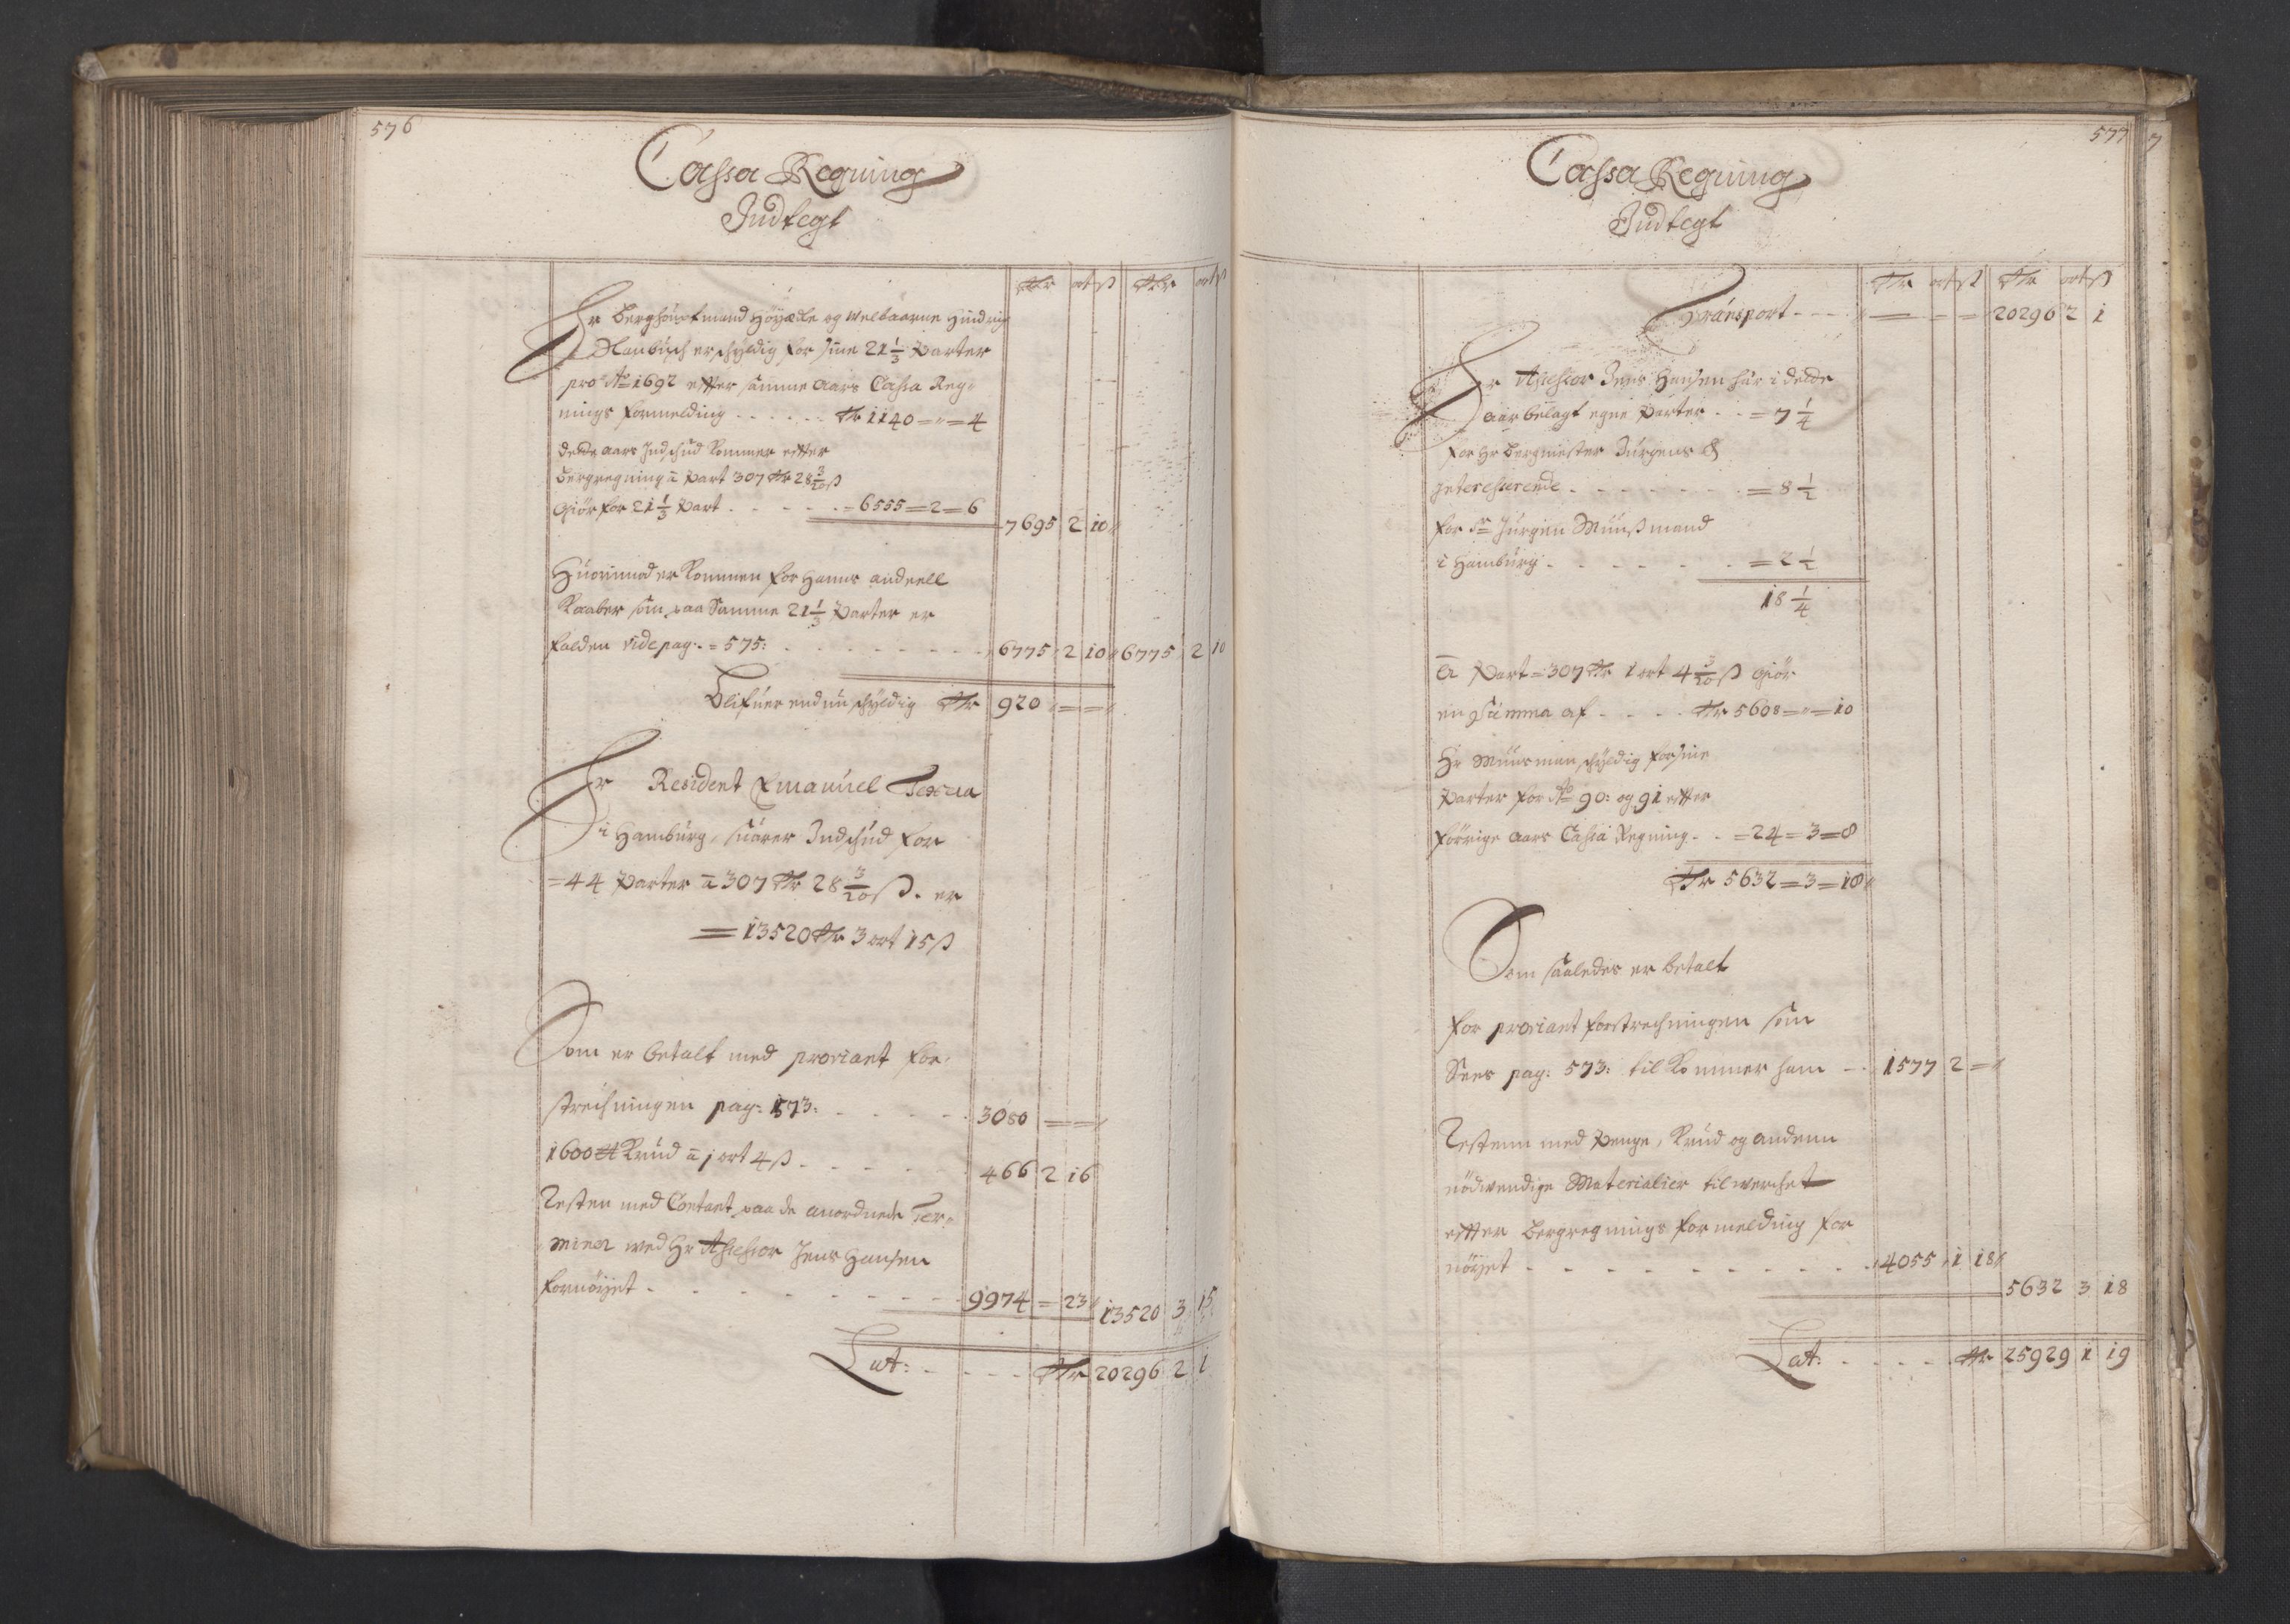 576
Cassa Regning
Indtegt
Rdr ort ß Rdr ort ß
Hr Berghoubtmand Höyædle og Welbaarne Hindrig
Slanbusch er schyldig for sine 21 1/3 Parter
pro Ao 1692 effter samme Aars Cassa Reg-
nings formelding . . . . . . Rdr 1140 = " = 4
dette Aars Indschud kommer effter
Bergregning a Part 307 Rdr 28 3/20 ß
Giör for 21 1/3 Part . . . . . . - 6555 = 2 = 6
7695 2 10
Huorimod er kommen for hanns andeell
Kaaber som paa Samme 21 1/3 Parter er
falden vide pag: = 575: . . . . . . . . 6775 2 10 6775 2 10
Blifuer endnu schyldig Rdr 920 = =
Hr Resident Emanuel Texeira
i Hamburg, suarer Indschud for
= 44 Parter a 307 Rdr 28 3/20 ß. er
= 13520 Rdr 3 ort 15 ß
Som er betalt med proviant for-
strechningen pag: 573: . . . . . 3080 = =
1600 ℔ Krud a j ort 4 ß . . . . . 466 2 16
Resten med Contant paa de anordnede Ter-
miner wed Hr Assessor Jens Hansen
fornöyet . . . . . . . . 9974 = 23 13520 3 15
Lat: . . . . Rdr 20296 2 1
577
7
Cassa Regning
Indtegt
Rdr ort ß Rdr ort ß
Transport . . . — — — 20296 2 1
Hr Assessor Jens Hansen har i dette
Aar belagt egne Parter . . = 7 1/4
for Hr Bergmester Jurgens &
Interesserende . . . . . . . = 8 1/2
for Sr Jurgen Münssmand
i Hamburg . . . . . . . = 2 1/2
18 1/4
a Part = 307 Rdr 1 ort 4 3/20 ß Giör
en Summa af . . . . Rdr 5608 = " = 10
Hr Münsman schyldig for sine
Parter for Ao 90: og 91 effter
forrige Aars Cassa Regning . . = 24 = 3 = 8
Rdr 5632 = 3 = 18
Som saaledes er betalt
for proviant forstrechningen som
Sees pag: 573: tilkommer ham — 1577 2 =
Restenn med Penge, Krud og andenn
nödwendige Materialier til werchet
effter Bergregnings formelding for
nöyet . . . . . . . . . . 4055 1 18
5632 3 18
Lat: . . . . . Rdr 25929 1 19